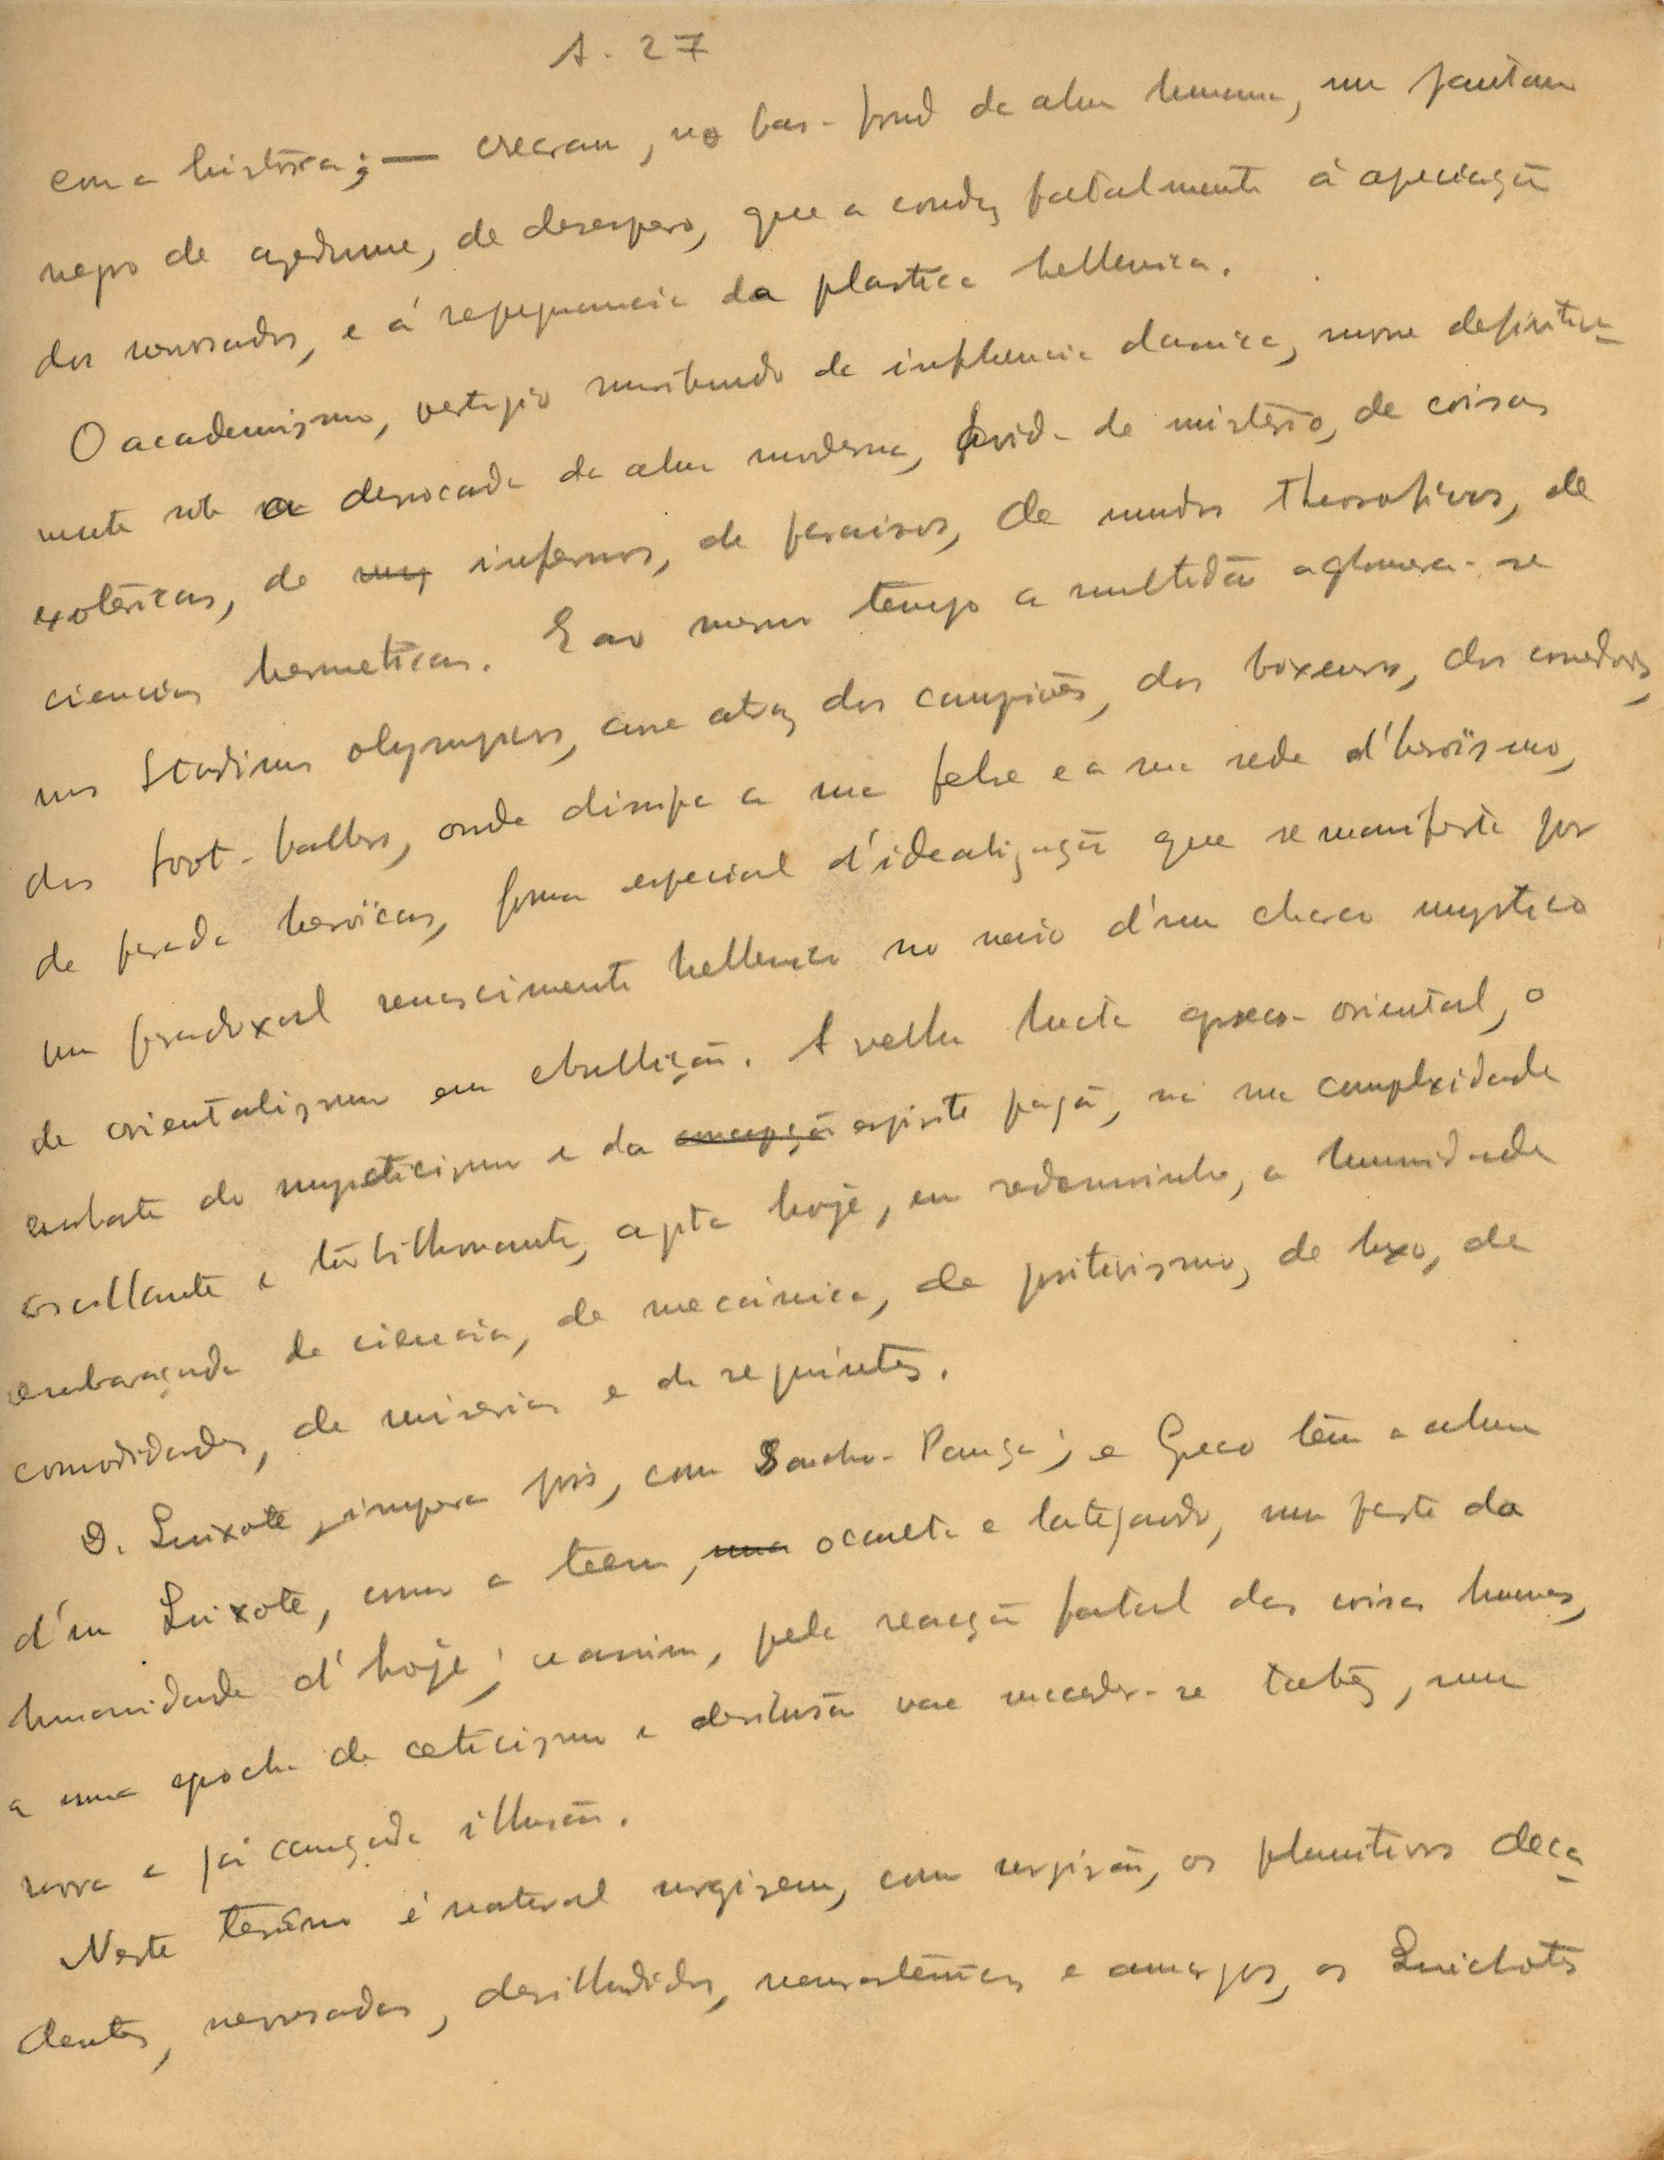 A. 27
com a história; — crearam, no bas-fond da alma humana, um pantano
negro de azedume, de desespero, que a conduz fatalmente á apreciação
dos nevrosados, e á repugnancia da plastica hellenica.
O academismo, vestigio moribundo da influencia classica, morre definitiva-
mente sob a derrocada da alma moderna, avida de mistério, de coisas
exotéricas, de infernos, de paraisos, de mundos theosoficos, de
ciencias hermeticas. E ao mesmo tempo a multidão aglomera-se
nos Stadiuns olympicos, corre atraz dos campiões, dos boxeurs, dos corredores,
dos foot-ballers, onde dissipa a sua febre e a sua sede d'heroïsmo,
de parada heroïca, forma especial d'idealização que se manifesta por
um paradoxal renascimento hellenico no meio d'um charco mystico
de orientalismo em ebullição. A velha lucta greco-oriental, o
embate do mysticismo e da concepção espirito pagã, na sua complexidade
oscillante e turbilhonante, agita hoje, em redemoinho, a humanidade
embaraçada de ciencia, de mecânica, de positivismo, de luxo, de
comodidades, de miserias e de requintes.
D. Quixote, impera pois, com Sancho-Pança; e Greco têm a alma
d'um Quixote, como a teem, uma occulta e latejando, uma parte da
humanidade d'hoje; e assim, pela reacção fatal das coisas humanas,
a uma epocha de ceticismo e desilusão vae suceder-se talvêz, uma
nova e já cançada illusão.
Neste terrêno é natural surgirem, com surgirão, os plumitivos deca-
dentes, nevrosados, desilludidos, neurasténicos e amargos, os Quichotes